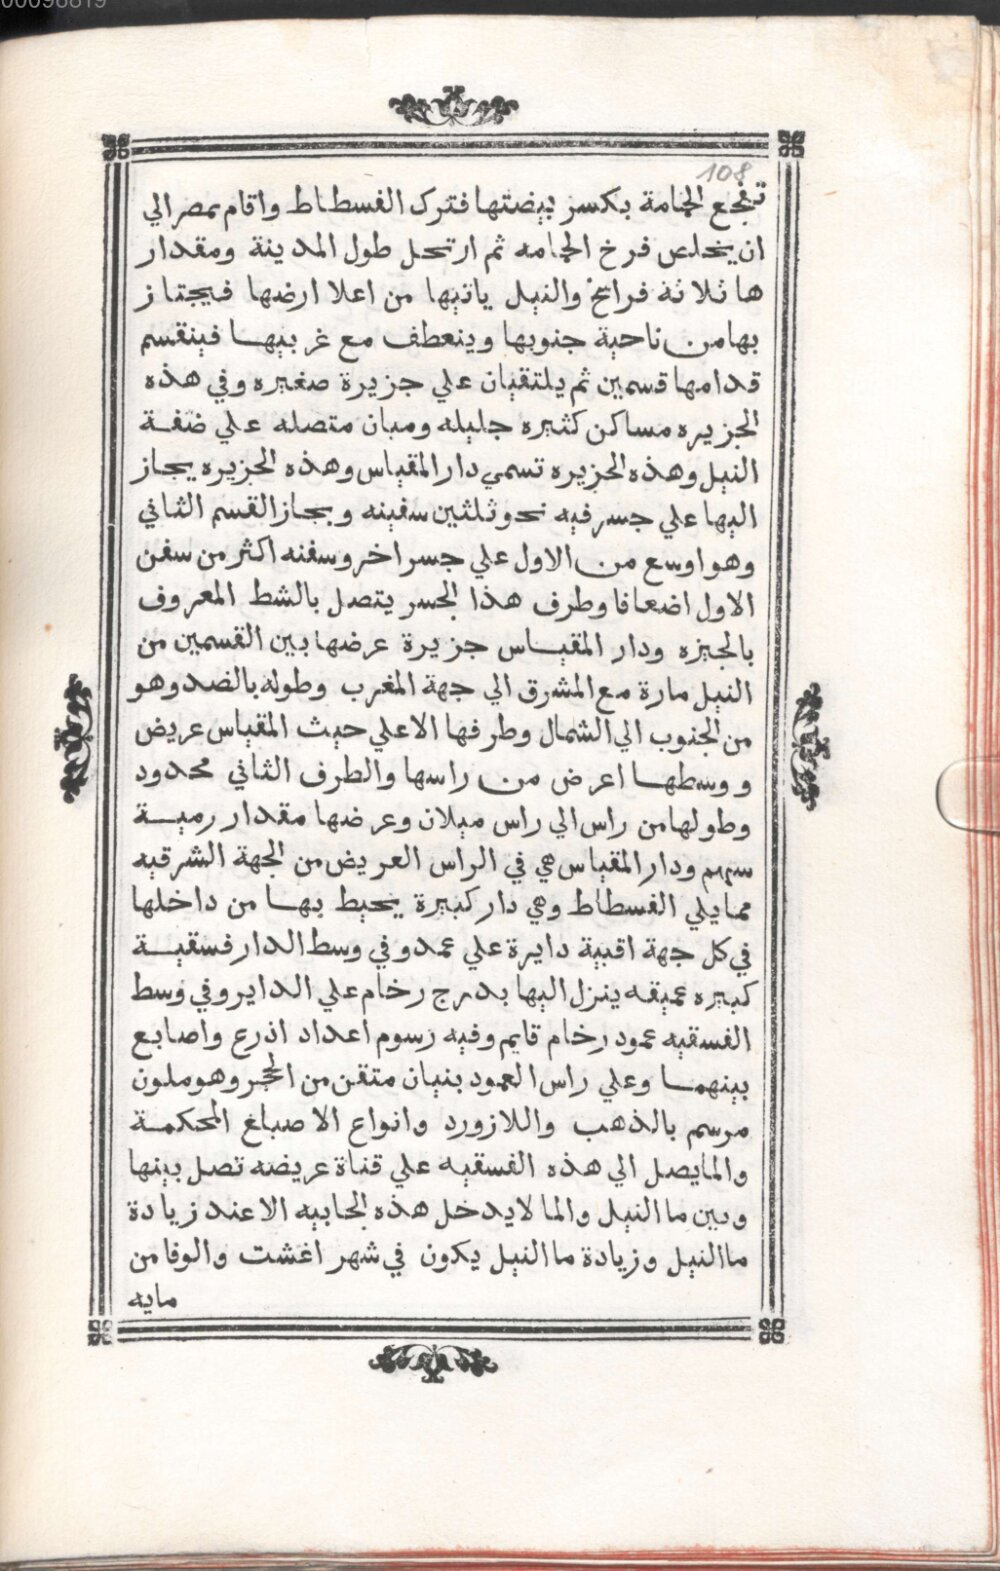 00098819
108
تفجع الحمامة بكسر بيضتها فترك الفسطاط واقام بمصر الي
ان يخلص فرخ الحمامه ثم ارتحل طول المدينة ومقدار
ها ثلاثة فراسخ والنيل ياتيها من اعلا ارضها فيجتاز
بها من ناحية جنوبها وينعطف مع غربيها فينقسم
قدامها قسمين ثم يلتقيان علي جزيرة صغيره وفي هذه
الجزيره مساكن كثيره جليله ومبان متصله علي ضفة
النيل وهذه الجزيره تسمي دار المقياس وهذه الجزيره يجاز
اليها علي جسر فيه نحو ثلثين سفينه ويجاز القسم الثاني
وهو اوسع من الاول علي جسر اخر وسفنه اكثر من سفن
الاول اضعافا وطرف هذا الجسر يتصل بالشط المعروف
بالجيزه ودار المقياس جزيرة عرضها بين القسمين من
النيل مارة مع المشرق الي جهة المغرب وطوله بالضد وهو
من الجنوب الي الشمال وطرفها الاعلي حيث المقياس عريض
ووسطها اعرض من راسها والطرف الثاني محدود
وطولها من راس الي راس ميلان وعرضها مقدار رمية
سهم ودار المقياس هي في الراس العريض من الجهة الشرقيه
مما يلي الفسطاط وهي دار كبيرة يحيط بها من داخلها
في كل جهة اقبية دايرة علي عمد وفي وسط الدار فسقية
كبيره عميقه ينزل اليها بدرج رخام علي الداير وفي وسط
الفسقيه عمود رخام قايم وفيه رسوم اعداد اذرع واصابع
بينهما وعلي راس العمود بنيان متقن من الحجر وهو ملون
مرسم بالذهب واللازورد وانواع الاصباغ المحكمة
والما يصل الي هذه الفسقيه علي قناة عريضه تصل بينها
وبين ما النيل والما لا يدخل هذه الجابيه الا عند زيادة
ما النيل وزيادة ما النيل يكون في شهر اغشت والوفا من
مايه